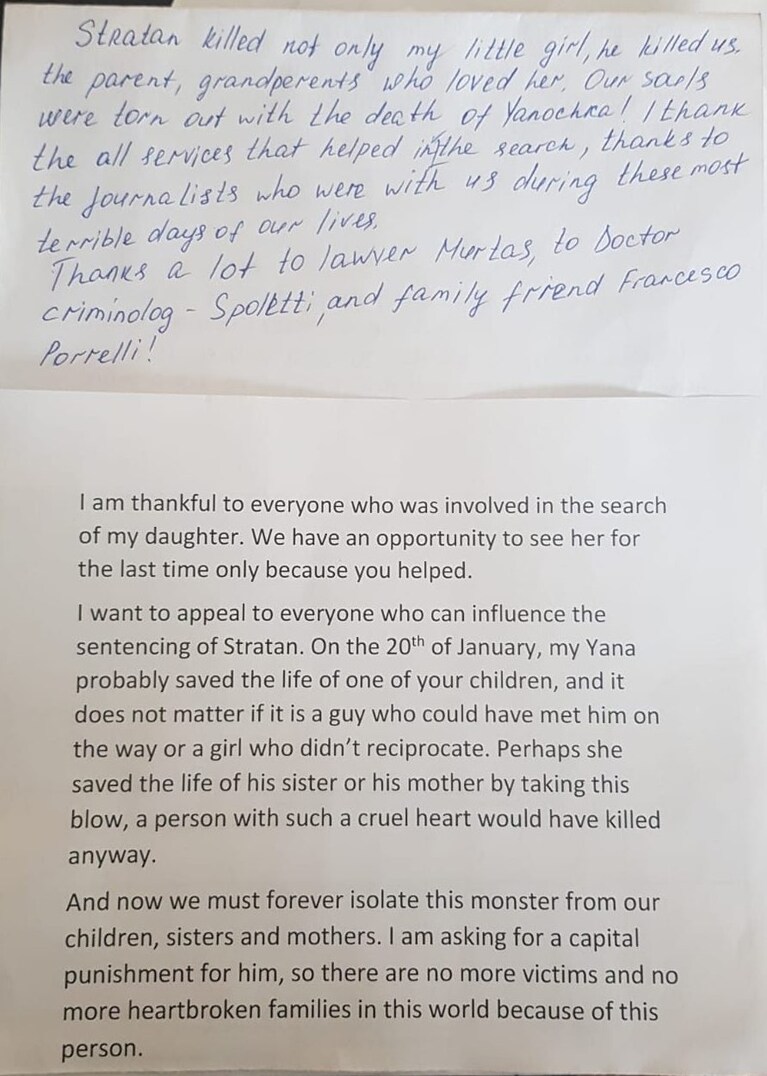 Stratan killed not only my little girl, he killed us.
the parent, grandperents who loved her. Our souls
were torn out with the death of Yanochka! I thank
the all services that helped in the search, thanks to
the journalists who were with us during these most
terrible days of our lives.
Thanks a lot to lawver Murtas, to Doctor
criminolog - Spoletti, and family friend Francesco
Porrelli!
I am thankful to everyone who was involved in the search
of my daughter. We have an opportunity to see her for
the last time only because you helped.
I want to appeal to everyone who can influence the
sentencing of Stratan. On the 20th of January, my Yana
probably saved the life of one of your children, and it
does not matter if it is a guy who could have met him on
the way or a girl who didn't reciprocate. Perhaps she
saved the life of his sister or his mother by taking this
blow, a person with such a cruel heart would have killed
anyway.
And now we must forever isolate this monster from our
children, sisters and mothers. I am asking for a capital
punishment for him, so there are no more victims and no
more heartbroken families in this world because of this
person.